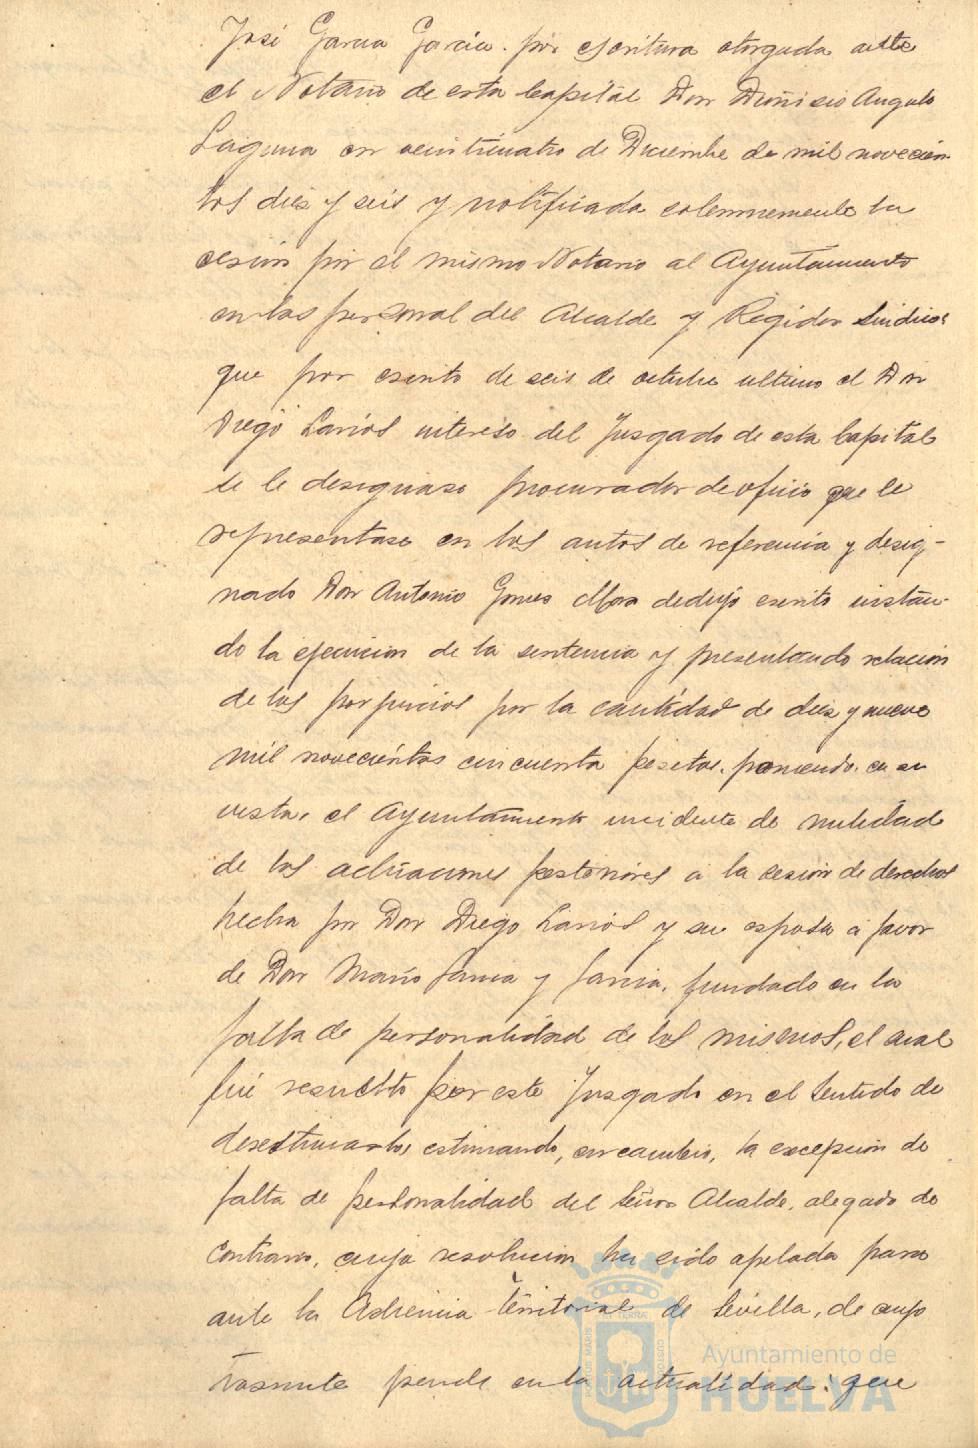 José Garcia Garcia. por escritura otorgada ante
el Notario de esta Capital Don Dionisio Angulo
Laguna en veinticuatro de Diciembre de mil novecien-
tos diez y seis y notificada solemnemente la
cesión por el mismo Notario al Ayuntamiento
en las personal del Alcalde y Regidor Sindico:
que por escrito de seis de octubre ultimo el Don
Diego Larios intereso del Jusgado de esta Capital
se le designase procurador de oficio que le
representase en los autos de referencia y desig-
nado Don Antonio Gomes Mora dedujo escrito instan-
do la ejecucion de la sentencia y presentando relacion
de los perjuicios por la cantidad de diez y nueve
mil novecientas cincuenta pesetas. poniendo. en su
vista, el Ayuntamiento incidente de nulidad
de las actuaciones posteriores a la cesión de derechos
hecha por Don Diego Larios y su esposa a favor
de Don Mario Garcia y Garcia, fundado en la
falta de personalidad de los mismos, el cual
fué resuelto por este Jusgado en el sentido de
desestimarlo, estimando, en cambio, la excepcion de
falta de personalidad del Señor Alcalde, alegado de
contrario, cuya resolucion ha sido apelada para
ante la Audiencia Territorial de Sevilla, de cuyo
tramite pende en la actualidad: que
Ayuntamiento de
HUELVA